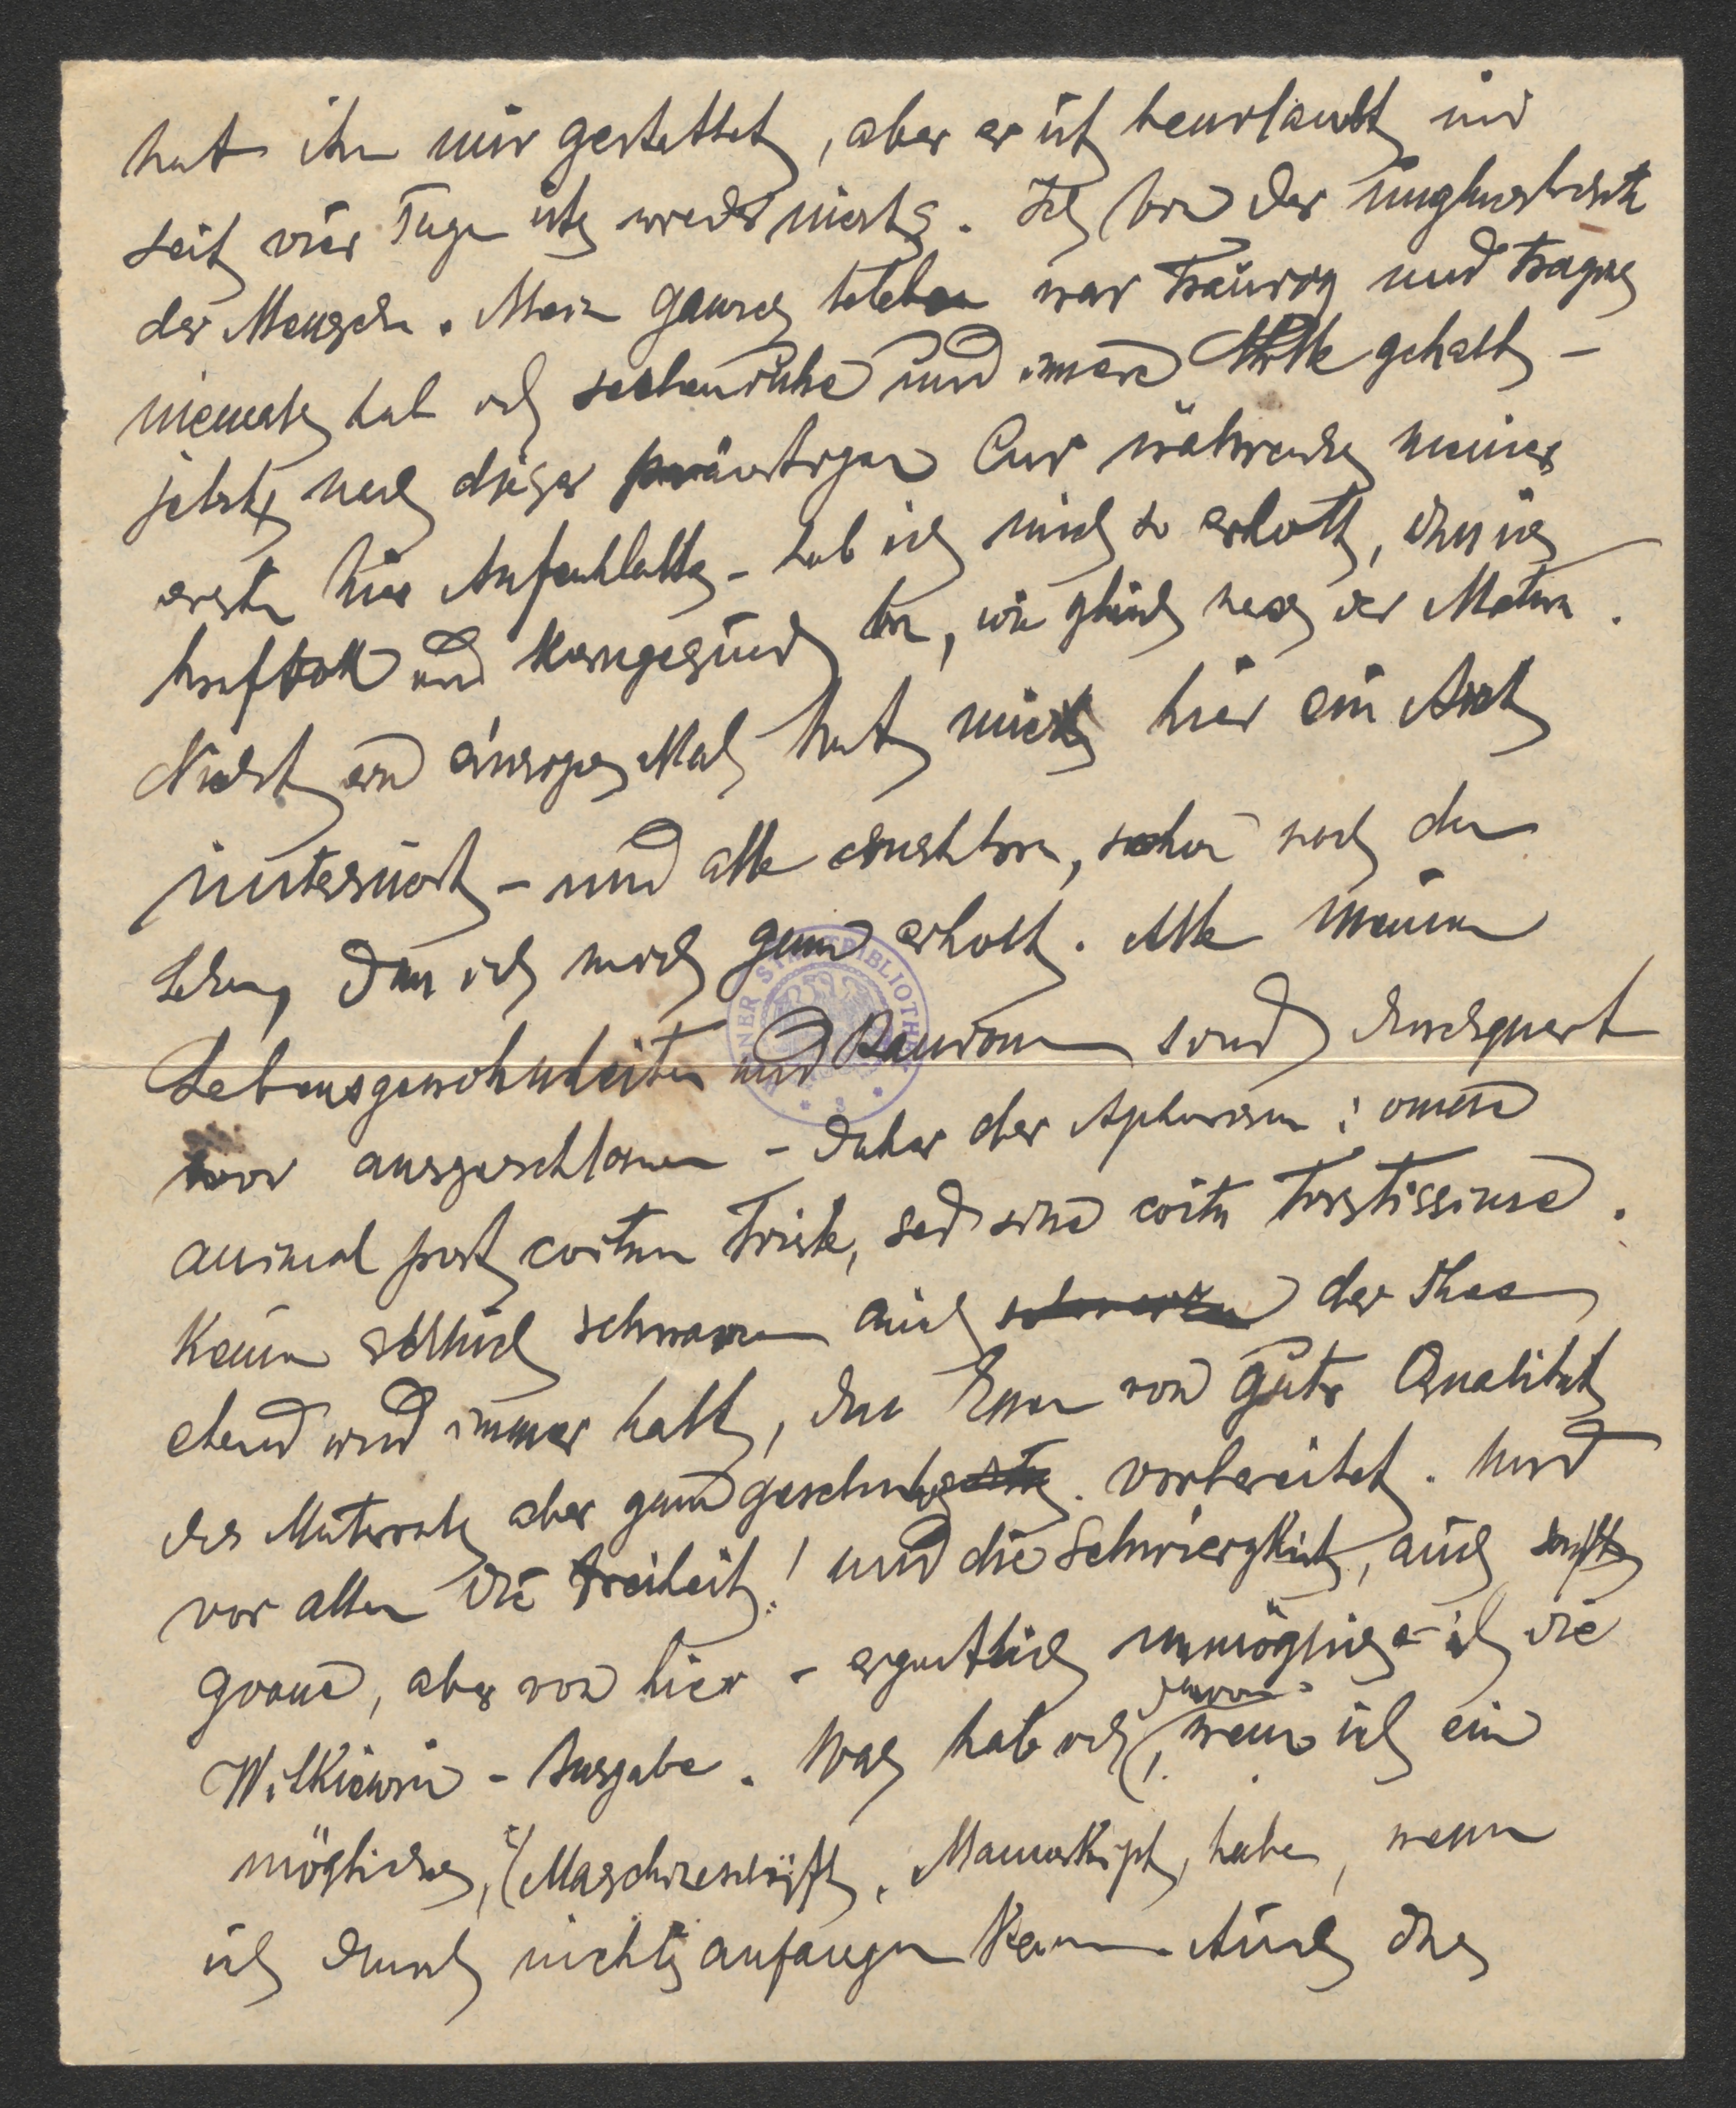 hat ihn mir gestattet, aber er ist beurlaubt und
seit vier Tage ists wieder nichts. Ich bin der unglücklichste
der Menschen. Mein ganzes Leben war traurig und tragisch
niemals hab ich Seelenruhe und innere Stille gehabt –
jetzt, nach dieser Cur während meines
ersten hier Aufenthaltes – hab ich mich so erholt, dass ich
kraftvoll und kerngesund bin, wie gleich nach der Matura.
Nicht ein einziges Mal hat mich hier ein Arzt
untersucht – und alle constatiren, schon nach dem
Sehen, dass ich mich ganz erholt. Alle meine
Lebensgewohnheiten und sind
ausgeschlossen – daher der Aphorism: omne
animal post coitum triste, sed sine coitu tristissime.
Keinen schwarzen auch der Thee
elend und immer kalt, das Essen von guter Qualität
des Materials aber ganz vorbereitet. Und
vor allem die Freiheit! und die Schwierigkeit, auch
, aber von hier – eigentlich unmöglich – ist die
– Ausgabe. Was hab ich davon, wenn ich ein
mögliches, Maschineschrift, Manuskript, habe, wenn
ich damit nichts anfangen kann. Auch das
WIENER STADTBIBLIOTHEK